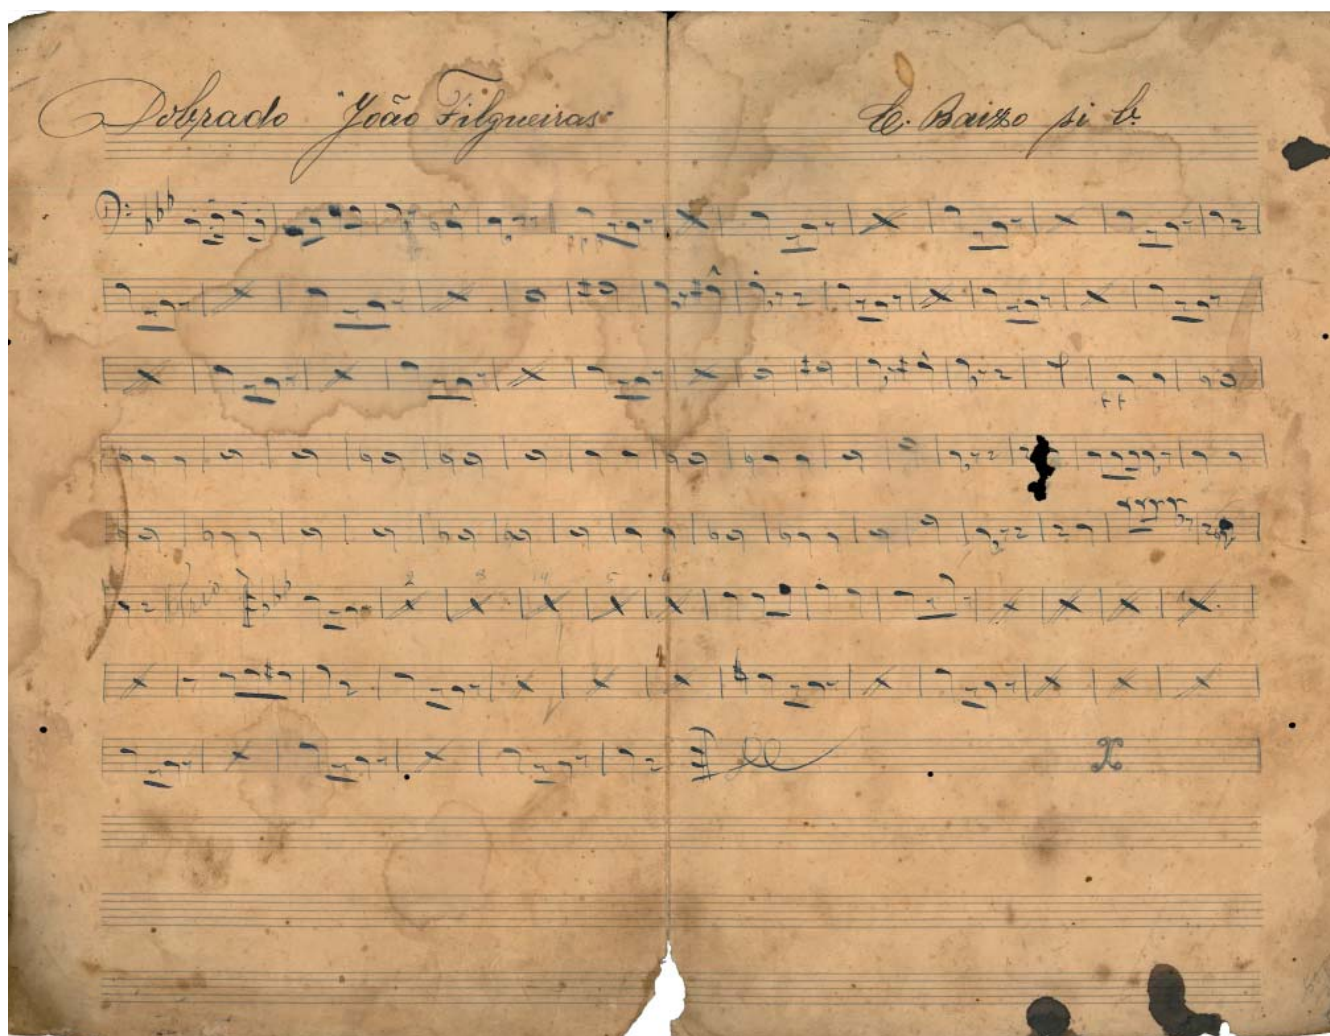 Dobrado "João Filgueiras" C. Baixo si b.
ff
Trio
2 3 4 5 6